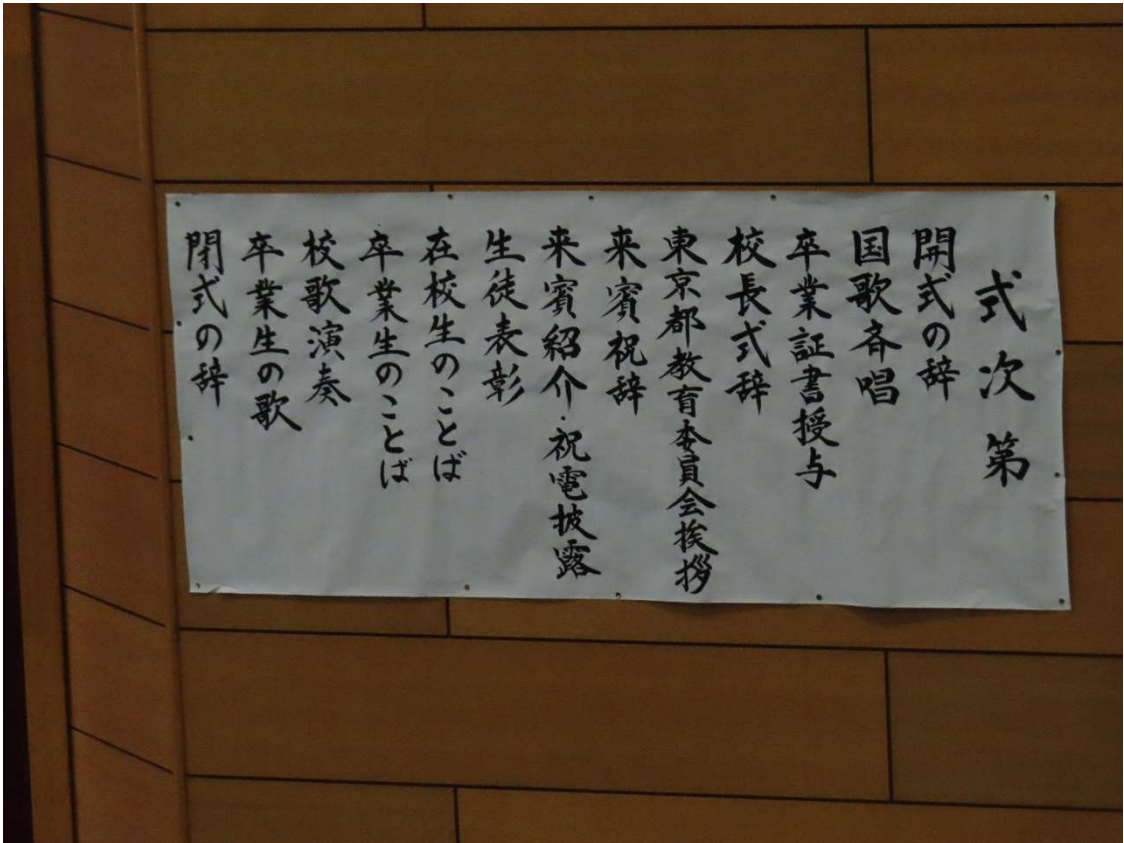 式次第
開式の辞
国歌斉唱
卒業証書授与
校長式辞
東京都教育委員会挨拶
来賓祝辞
来賓紹介・祝電披露
生徒表彰
在校生のことば
卒業生のことば
校歌演奏
卒業生の歌
閉式の辞